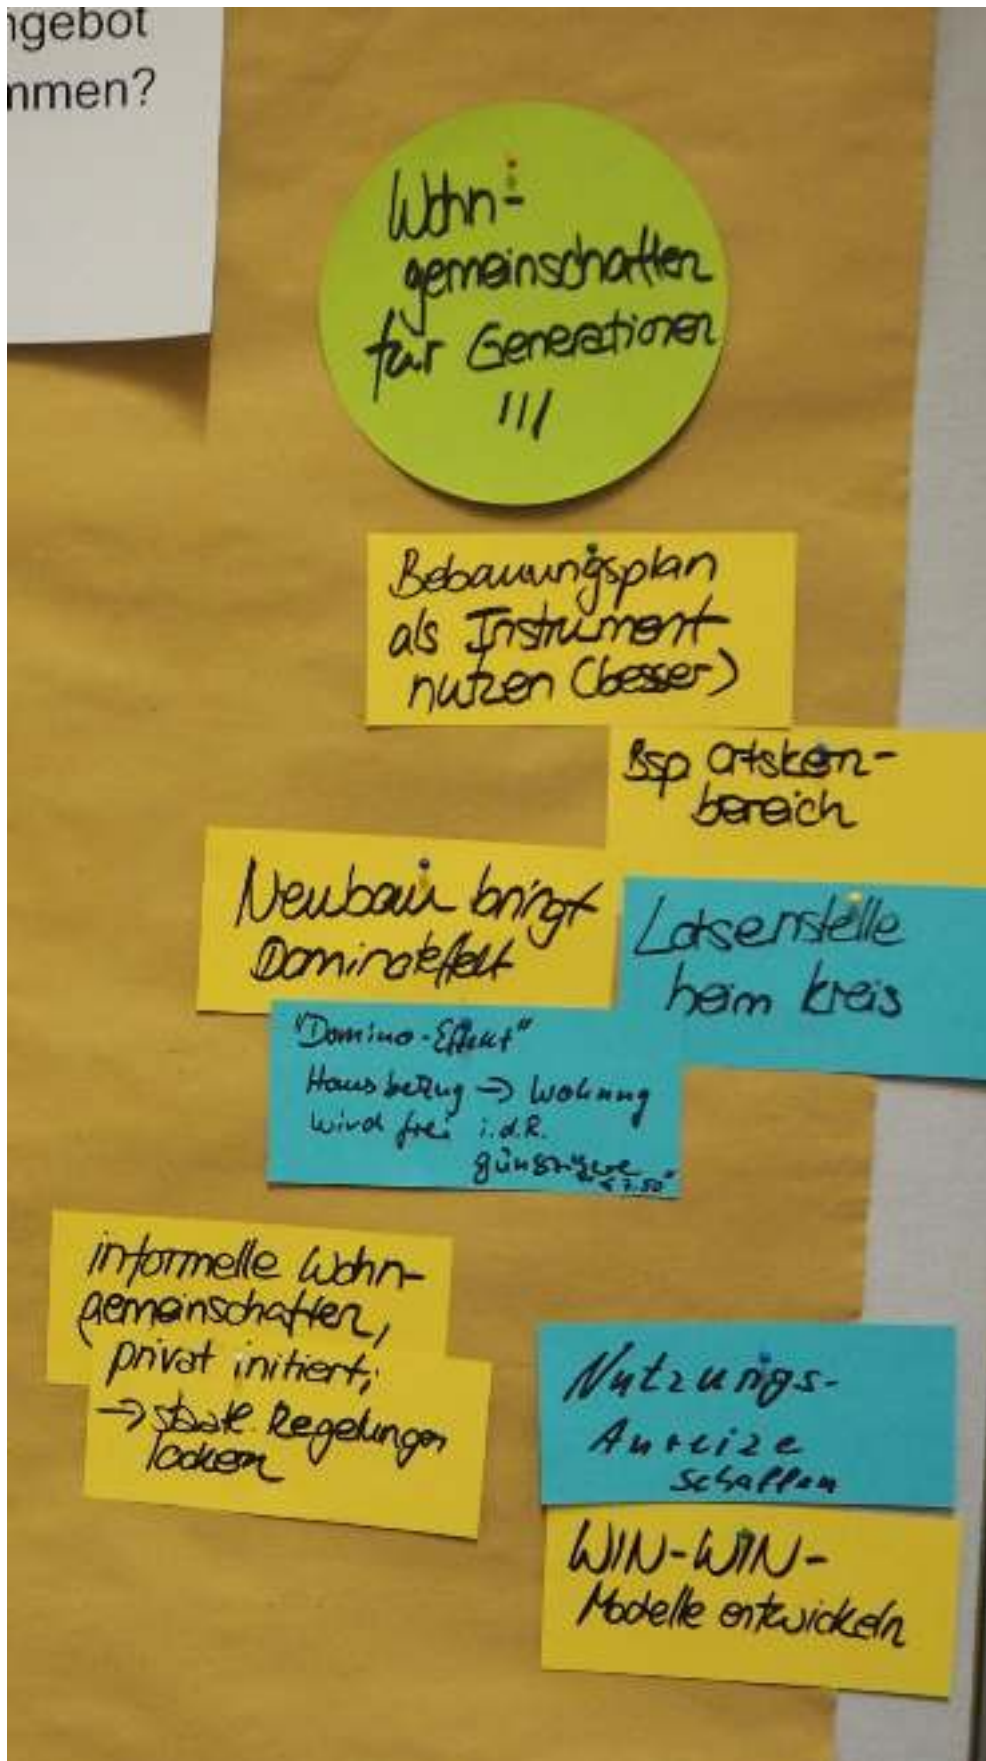 ngebot
mmen?
Wohn-
gemeinschaften
für Generationen
III
Bebauungsplan
als Instrument
nutzen (besser)
Bsp Ortskern-
bereich
Neubau bringt
Dominoeffekt
Lotsenstelle
beim Kreis
"Domino-Effekt"
Hausbezug → Wohnung
wird frei i.d.R.
günstigere
informelle Wohn-
gemeinschaften,
privat initiert;
→ staatl Regelungen
lockern
Nutzungs-
Anreize
schaffen
WIN-WIN-
Modelle entwickeln